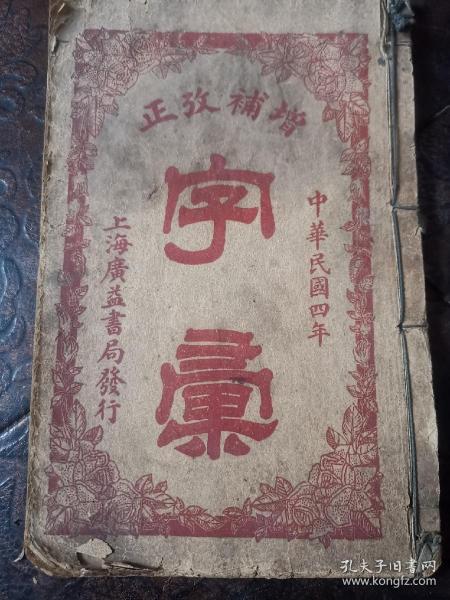 增補攷正
中華民國四年
字彙
上海廣益書局發行
孔夫子旧书网
www.kongfz.com